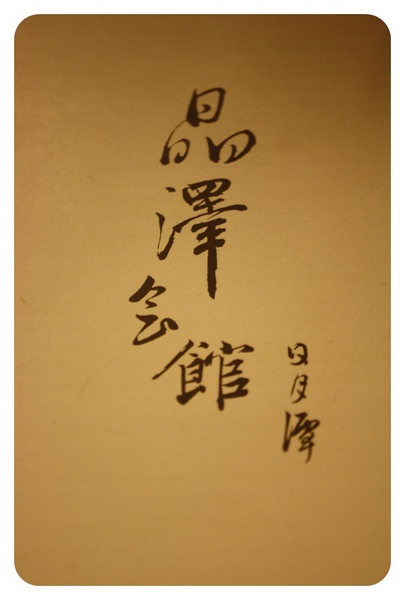 晶澤会館
日月潭